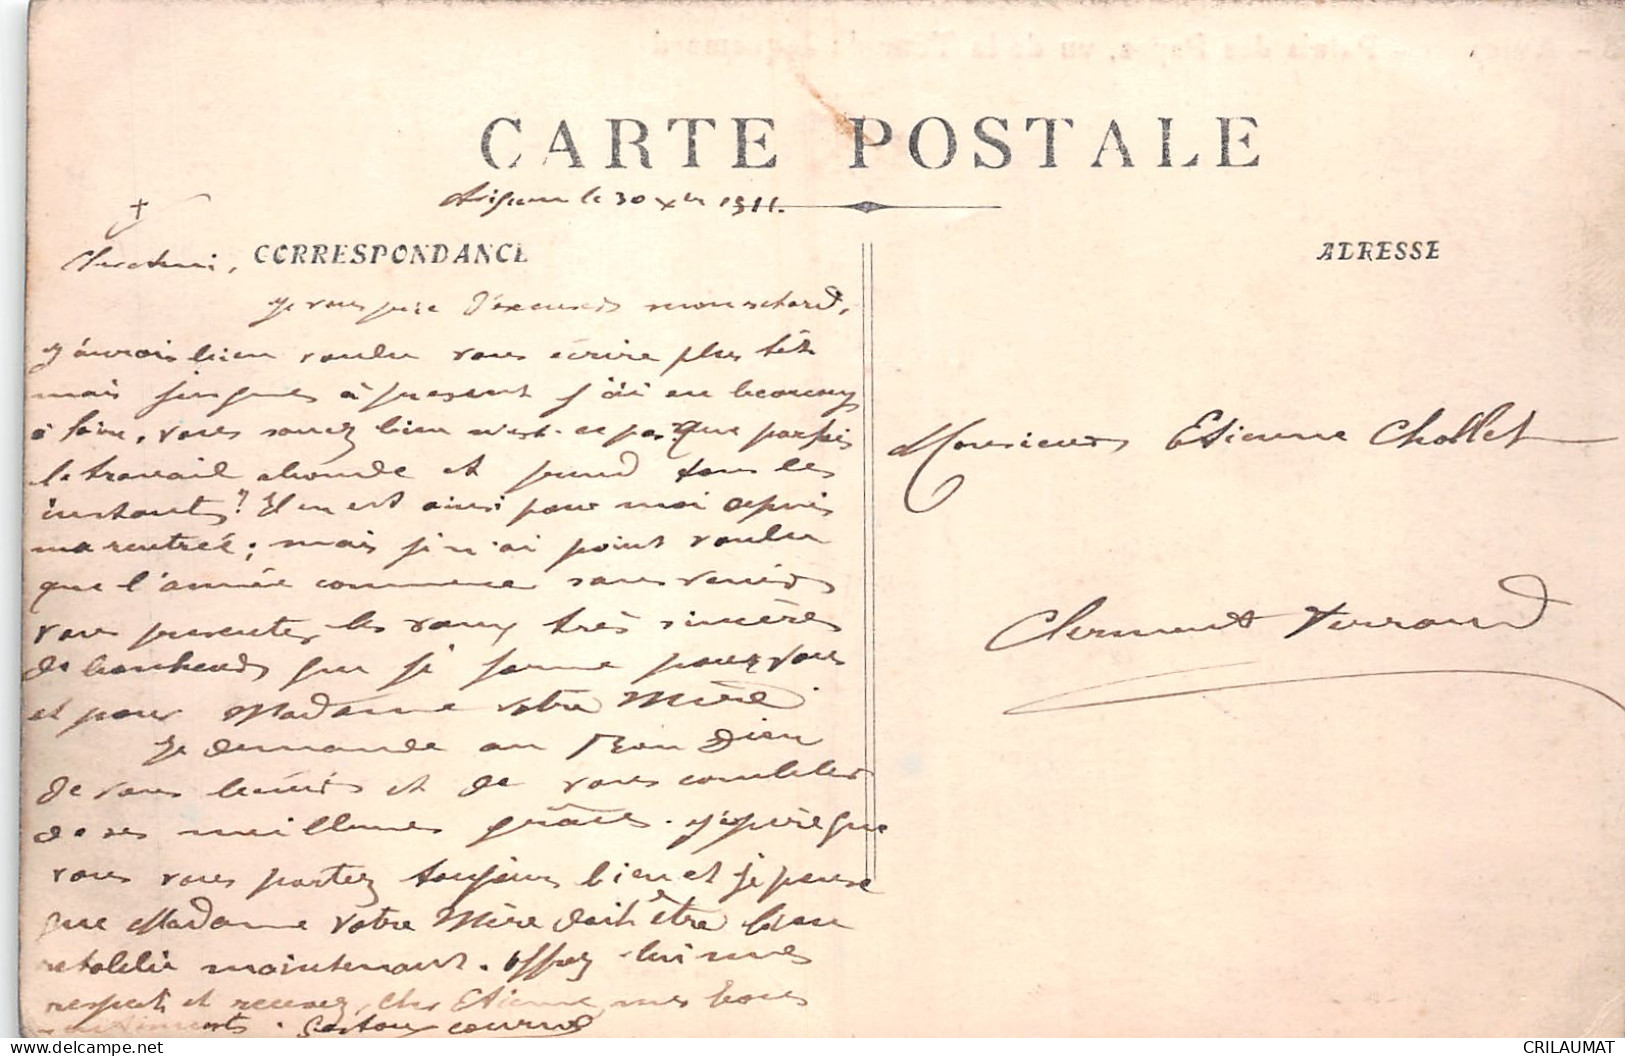 CARTE POSTALE
Avignon le 30 Xbre 1911.
Cher Ami,
CORRESPONDANCE
ADRESSE
je vous prie d'excuser mon retard,
j'aurais bien voulu vous écrire plus tôt
mais jusques à présent j'ai eu beaucoup
à faire, vous savez bien n'est-ce pas que parfois
le travail abonde et prend tous les
instants? Il en est ainsi pour moi depuis
ma rentrée; mais je n'ai point voulu
que l'année commence sans venir
vous présenter les vœux très sincères
de bonheur que je forme pour vous
et pour Madame votre Mère.
Je demande au Bon Dieu
de vous bénir et de vous combler
de ses meilleures grâces. J'espère que
vous vous portez toujours bien et je pense
que Madame votre Mère doit être bien
rétablie maintenant. Offrez-lui mes
respects et recevez, cher Etienne, mes bons
sentiments. Gaston
Monsieur Etienne Chollet
Clermont Ferrand
CRILAUMAT